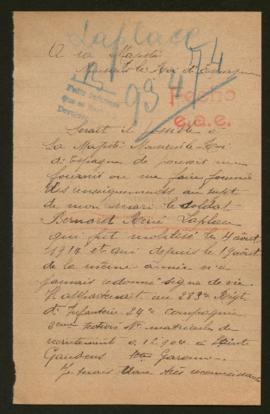 Laplace
A sa Majesté
Monsieur le Roi d'Espagne
R 1
93474
Hecho
e.a.e.
Serait il possible à
Sa Majesté Monsieur le Roi
d'Espagne de pouvoir me
fournir ou me faire fournir
des renseignements au sujet
de mon mari le soldat
Bernard René Laplace
qui fut mobilisé le 4 août
1914 et qui depuis le 19 août
de la même année n'a
jamais redonné signe de vie.
Il appartenait au 283me Régt
d'Infanterie 24me compagnie
3eme section Nº matricule de
recrutement à Saint
Gaudens Hte Garonne.
Je serais Sire très reconnaissante